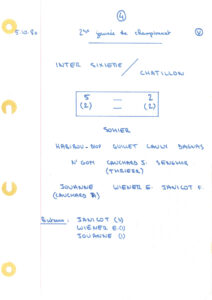 ④
5.10.80 2ème journée de championnat
INTER SIXIEME / CHATILLON
5 — 2
(2) (2)
SOHIER
HABIBOU-DIOP GUILLET LAULY DAGNAS
N'GOM CAUCHARD J. SENGHIR
(THRIERR)
JOUANNE WIENER E. JANICOT F.
(CAUCHARD B)
Buteurs : JANICOT (3)
WIENER E. (1)
JOUANNE (1)